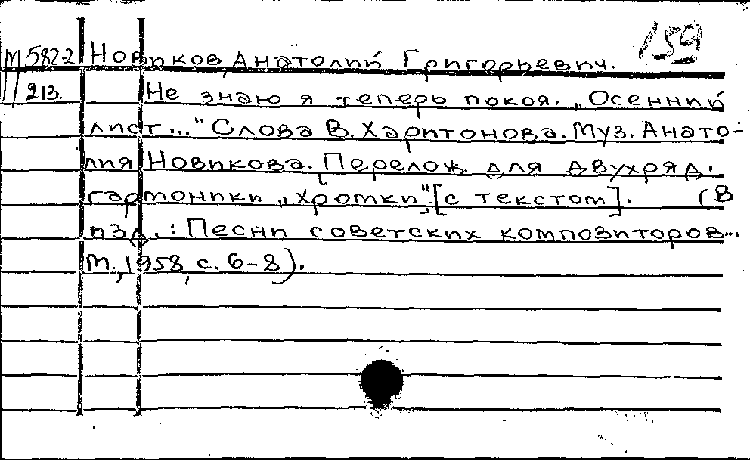 159
М 582-2 Новиков, Анатолий Григорьевич.
213 Не знаю я теперь покоя. „Осенний
лист..." Слова В. Харитонова. Муз. Анато-
лия Новикова. Перелож. для двухряд.
гармоники „хромки" [с текстом]. (В
изд.: Песни советских композиторов...
М., 1958, с. 6-8).